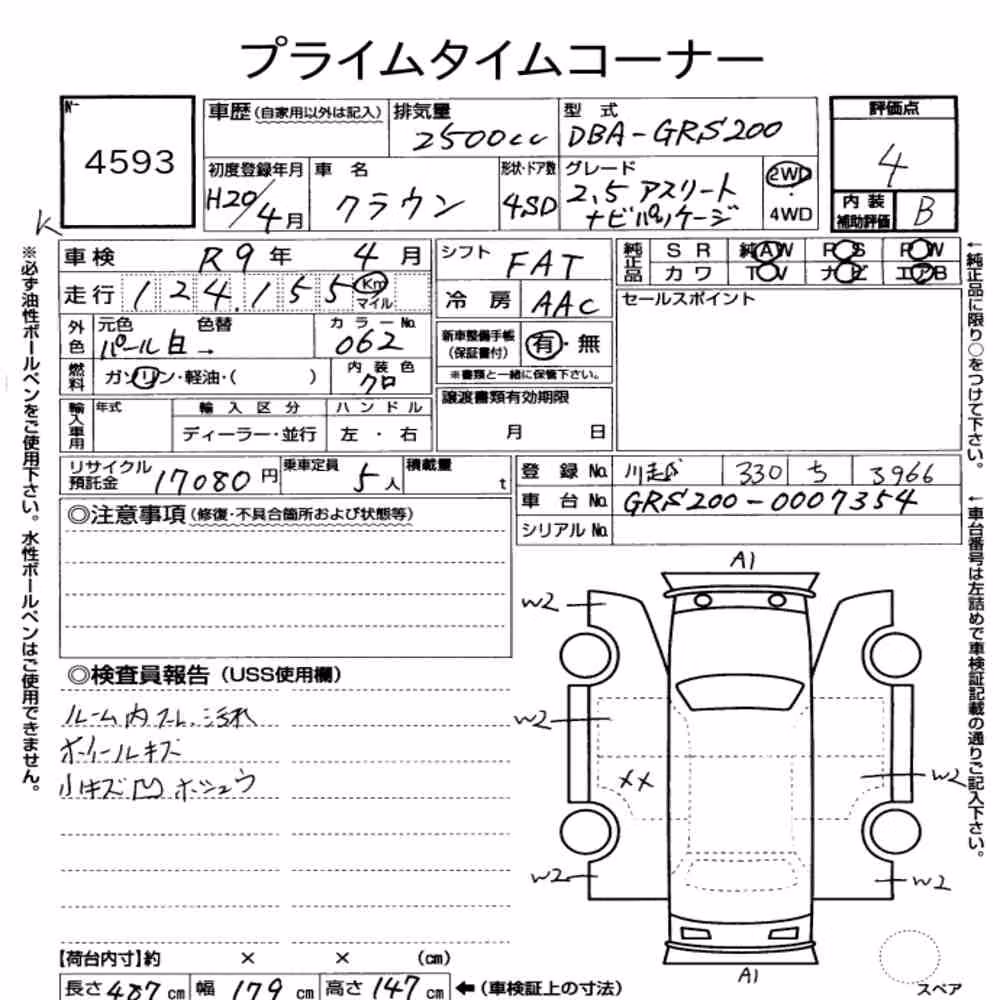 プライムタイムコーナー
№
4593
K
車歴(自家用以外は記入)
排気量
2500cc
型式
DBA-GRS200
評価点
4
初度登録年月
H20/4月
車名
クラウン
形状・ドア数
4SD
グレード
2.5 アスリート
ナビパッケージ
2WD
・
4WD
内装
補助評価
B
車検 R9年 4月
走行 124,155 Km
マイル
シフト FAT
冷房 AAC
純正品
SR 純AW PS PW
カワ TV ナビ エアB
外色
元色 色替
パール白 →
カラーNo.
062
新車整備手帳
(保証書付)
有・無
※書類と一緒に保管下さい。
セールスポイント
燃料
ガソリン・軽油・( )
内装色
クロ
輸入車用
年式
輸入区分
ハンドル
ディーラー・並行
左・右
譲渡書類有効期限
月 日
リサイクル
預託金
17080円
乗車定員
5人
積載量
t
登録No. 川越 330 ち 3966
車台No. GRS200-0007354
シリアルNo.
◎注意事項(修復・不具合箇所および状態等)
◎検査員報告(USS使用欄)
ルーム内スレ、汚れ
ホイールキズ
小キズ凹 ホシュウ
A1
W2
W2
XX
W2
W2
W2
A1
スペア
【荷台内寸】約 × × (cm)
長さ 487cm 幅 179cm 高さ 147cm ←(車検証上の寸法)
※必ず油性ボールペンをご使用下さい。水性ボールペンはご使用できません。
←純正品に限り○をつけて下さい。
←車台番号は左詰めで車検証記載の通りご記入下さい。